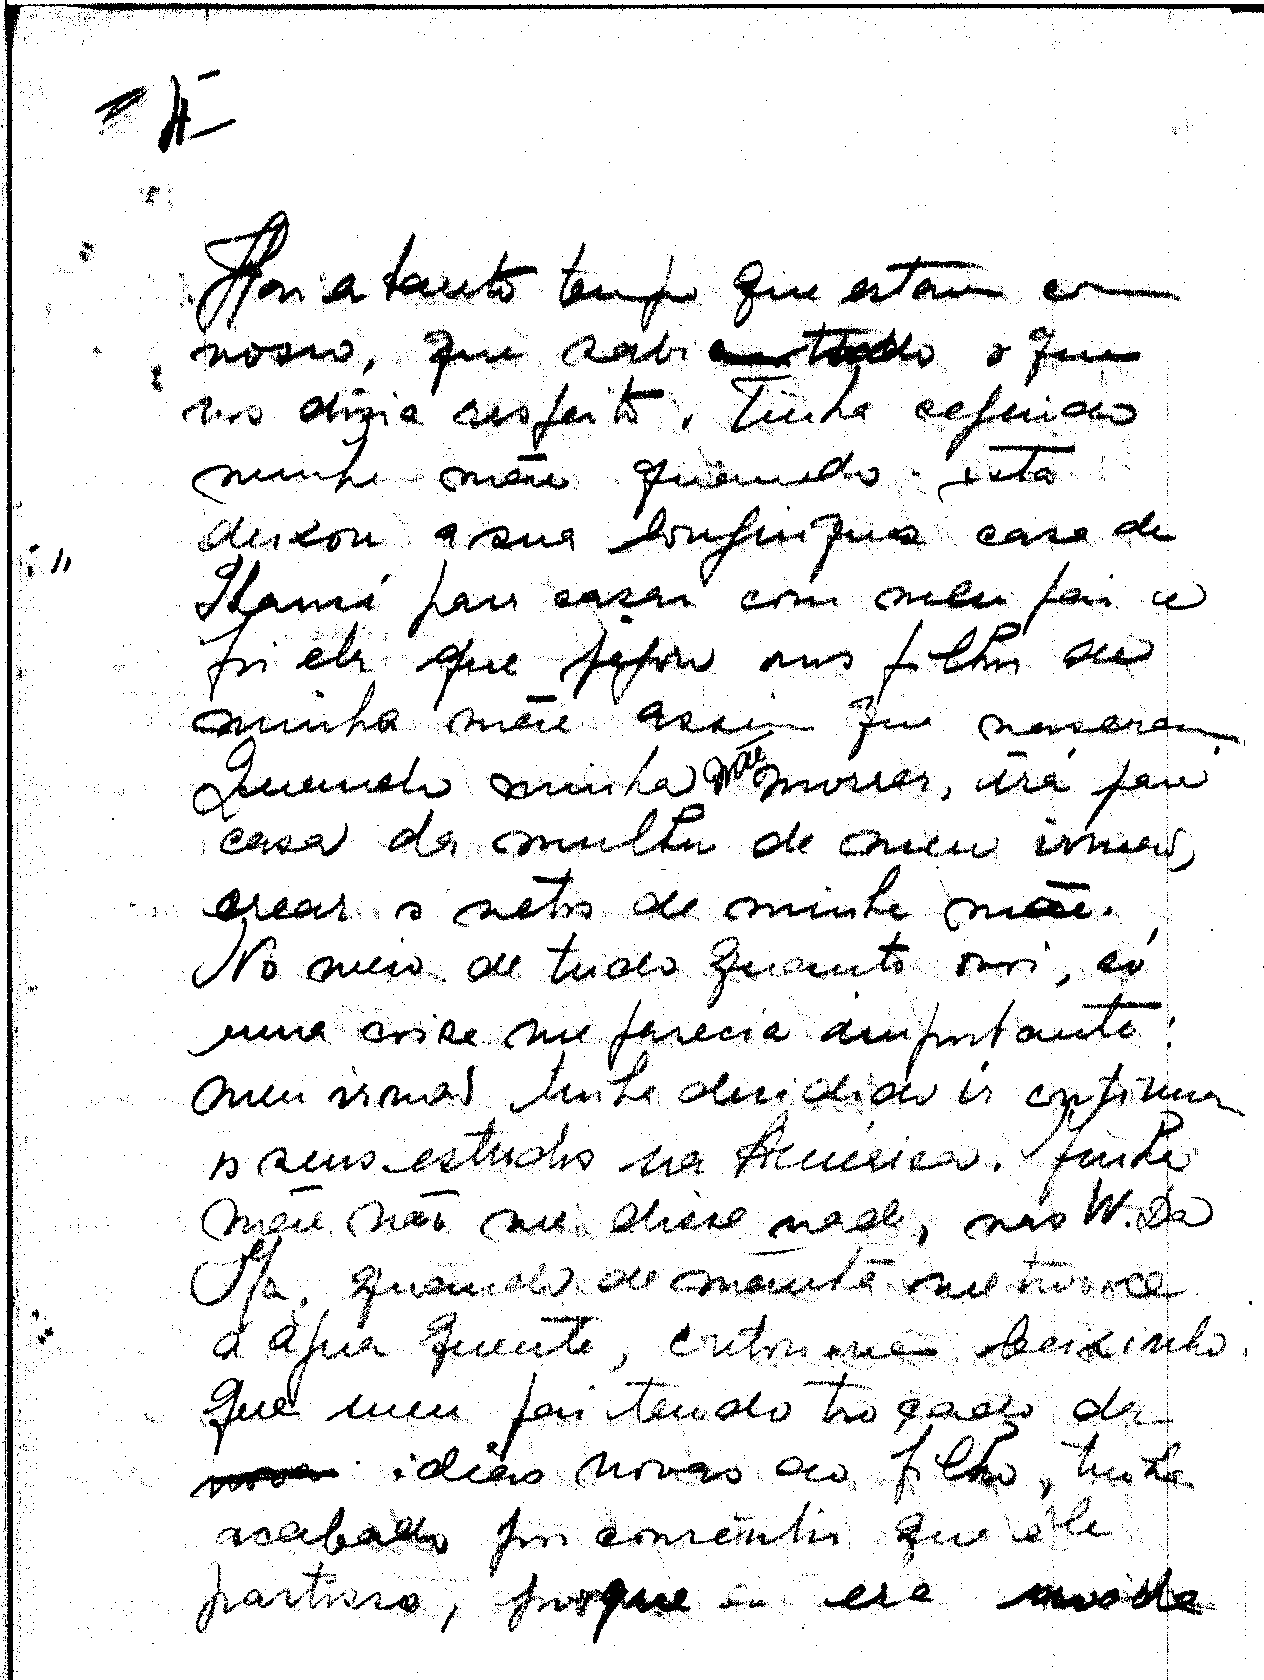 Havia tanto tempo que estava com
nosco, que sabia tudo o que
nos dizia respeito. Tinha seguido
minha mãe quando esta
deixou a sua longinqua casa de
para casar com meu pai e
foi ela que pegou nos filhos de
minha mãe assim que nasceram.
Quando minha mãe morrer, irá para
casa da mulher de meu irmão,
crear os netos de minha mãe.
No meio de tudo quanto ouvi, só
uma coisa me parecia importante:
meu irmão tinha decidido ir continuar
os seus estudos na America. Minha
mãe não me disse nada, mas W. Da
Ma, quando de manhã me trouxe
a água quente, contou-me baixinho
que meu pai tendo troçado das
idéias novas do filho, tinha
acabado por consentir que ele
partisse, porque era moda